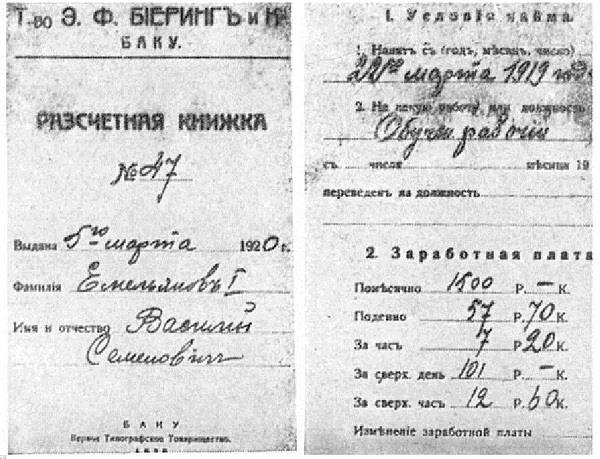 Т-во Э. Ф. БІЕРИНГЪ и К°
БАКУ.
РАЗСЧЕТНАЯ КНИЖКА
№ 47
Выдана 5го марта 1920 г.
Фамилія Емельяновъ I
Имя и отчество Василий
Семенович
БАКУ
Типографское Товарищество.
1. Условіе найма.
1. Нанятъ съ (годъ, мѣсяцъ, число)
22го марта 1919 года
2. На какую работу или должность
рабочій
съ числа мѣсяца 19
переведенъ на должность
2. Заработная плата
Помѣсячно 1500 Р. — К.
Поденно 57 Р. 70 К.
За часъ 7 Р. 20 К.
За сверх. день 101 Р. — К.
За сверх. часъ 12 Р. 60 К.
Измѣненіе заработной платы